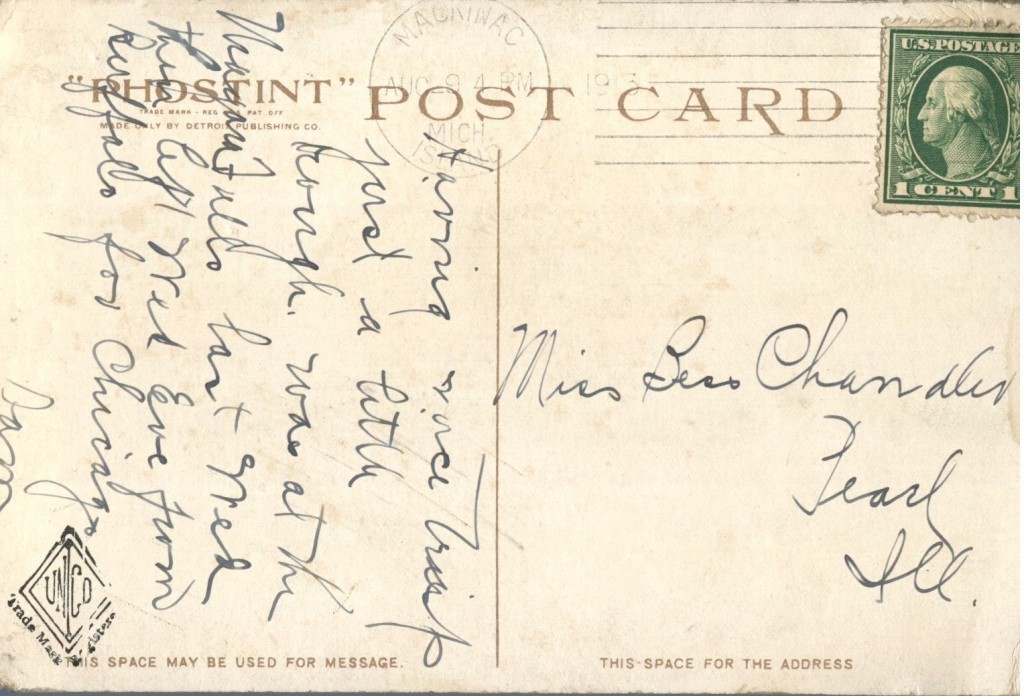 "PHOSTINT" POST CARD
TRADE MARK - REG PAT. OFF
MADE ONLY BY DETROIT PUBLISHING CO.
MACKINAC
AUG 9 4 PM 1913
MICH.
ISLAND
U.S. POSTAGE
1 CENT 1
Having nice Trip
just a little
rough. was at the
Niagara Falls last Wed
then left Wed Eve from
Buffalo for Chicago
Miss Bess Chandler
Pearl
Ill.
UNCO
Trade Mark
THIS SPACE MAY BE USED FOR MESSAGE.
THIS SPACE FOR THE ADDRESS